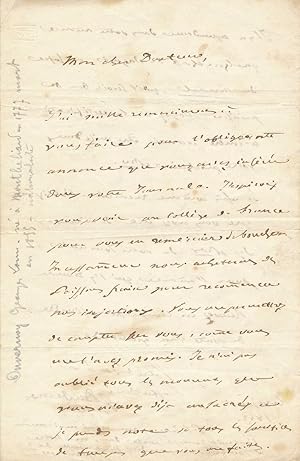 Mon cher Docteur,
J'ai mille remerciemens à
vous faire pour l'obligeante
annonce que vous avez insérée
dans votre Journal. J'espérais
vous voir au Collège de france
pour vous en remercier de bouche.
Incessamment nous acheterons des
Poissons frais pour recommencer
nos injections. Nous
compter sur vous, comme vous
me l'avez promis. Je n'ai pas
oublié tous les momens que
vous m'avez déjà sacrifiés et
je prends note de tous les
de temps que vous me faites.
Duvernoy George Louis - né à Montbéliard en 1777 mort
en 1855 - naturaliste